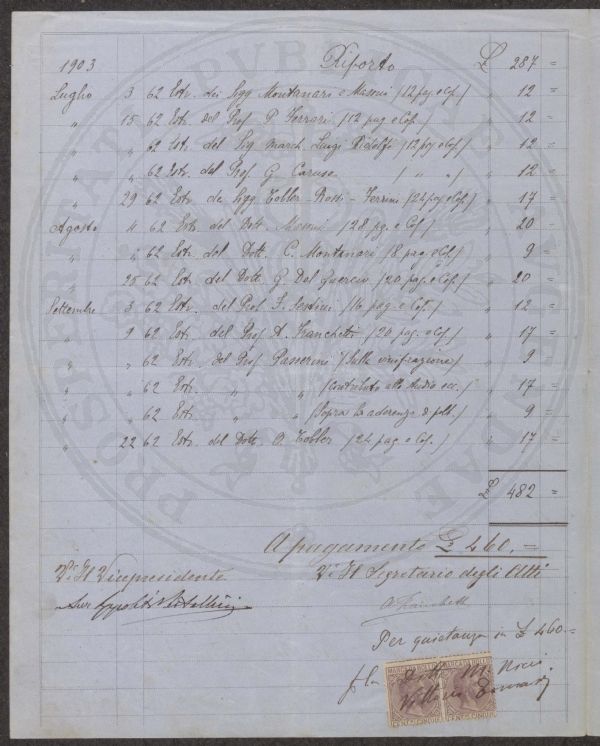 1903 Riporto £ 287 =
Luglio 3 62 Estr. dei Sigg Montanari e Missoni (12 pag. e Cop.) " 12 =
" 15 62 Estr. del Prof. P. Ferrari (12 pag e Cop.) " 12 =
" " 62 Estr. del Sig March. Luigi Ridolfi (12 pg e Cop.) " 12 =
" " 62 Estr. del Prof G. Caruso ( " " ) " 12 =
" 29 62 Estr. de Sigg Tobler - Rossi - Ferrini (24 pag e Cop.) " 17 =
Agosto 4 62 Estr. del Dott. (28 pg. e Cop.) " 20 =
" " 62 Estr. del Dott. C. Montanari (8 pag e Cop.) " 9 =
" 25 62 Estr. del Dott. G. Del Guercio (20 pag. e Cop.) " 20 =
Settembre 3 62 Estr. del Prof. F. Sestini (16 pag. e Cop.) " 12 =
" 9 62 Estr. del Prof A. Franchetti (20 pag. e Cop.) " 17 =
" " 62 Estr. del Prof Passerini (Sulla vinificazione) " 9 =
" " 62 Estr. " " (Contributo allo studio ecc.) " 17 =
" " 62 Estr. " " (Sopra la aderenza d. ) " 9 =
" 22 62 Estr. del Dott. O. Tobler (24 pag e Cop.) " 17 =
£ 482 =
A pagamento £ 460.=
V° Il Vicepresidente V° Il Segretario degli Atti
A Franchetti
Per quietanza in £ 460.=
MARCA DA BOLLO MARCA DA BOLLO
CENT. CINQUE CENT. CINQUE
PROSPERITATI PVBLICAE AVGENDAE